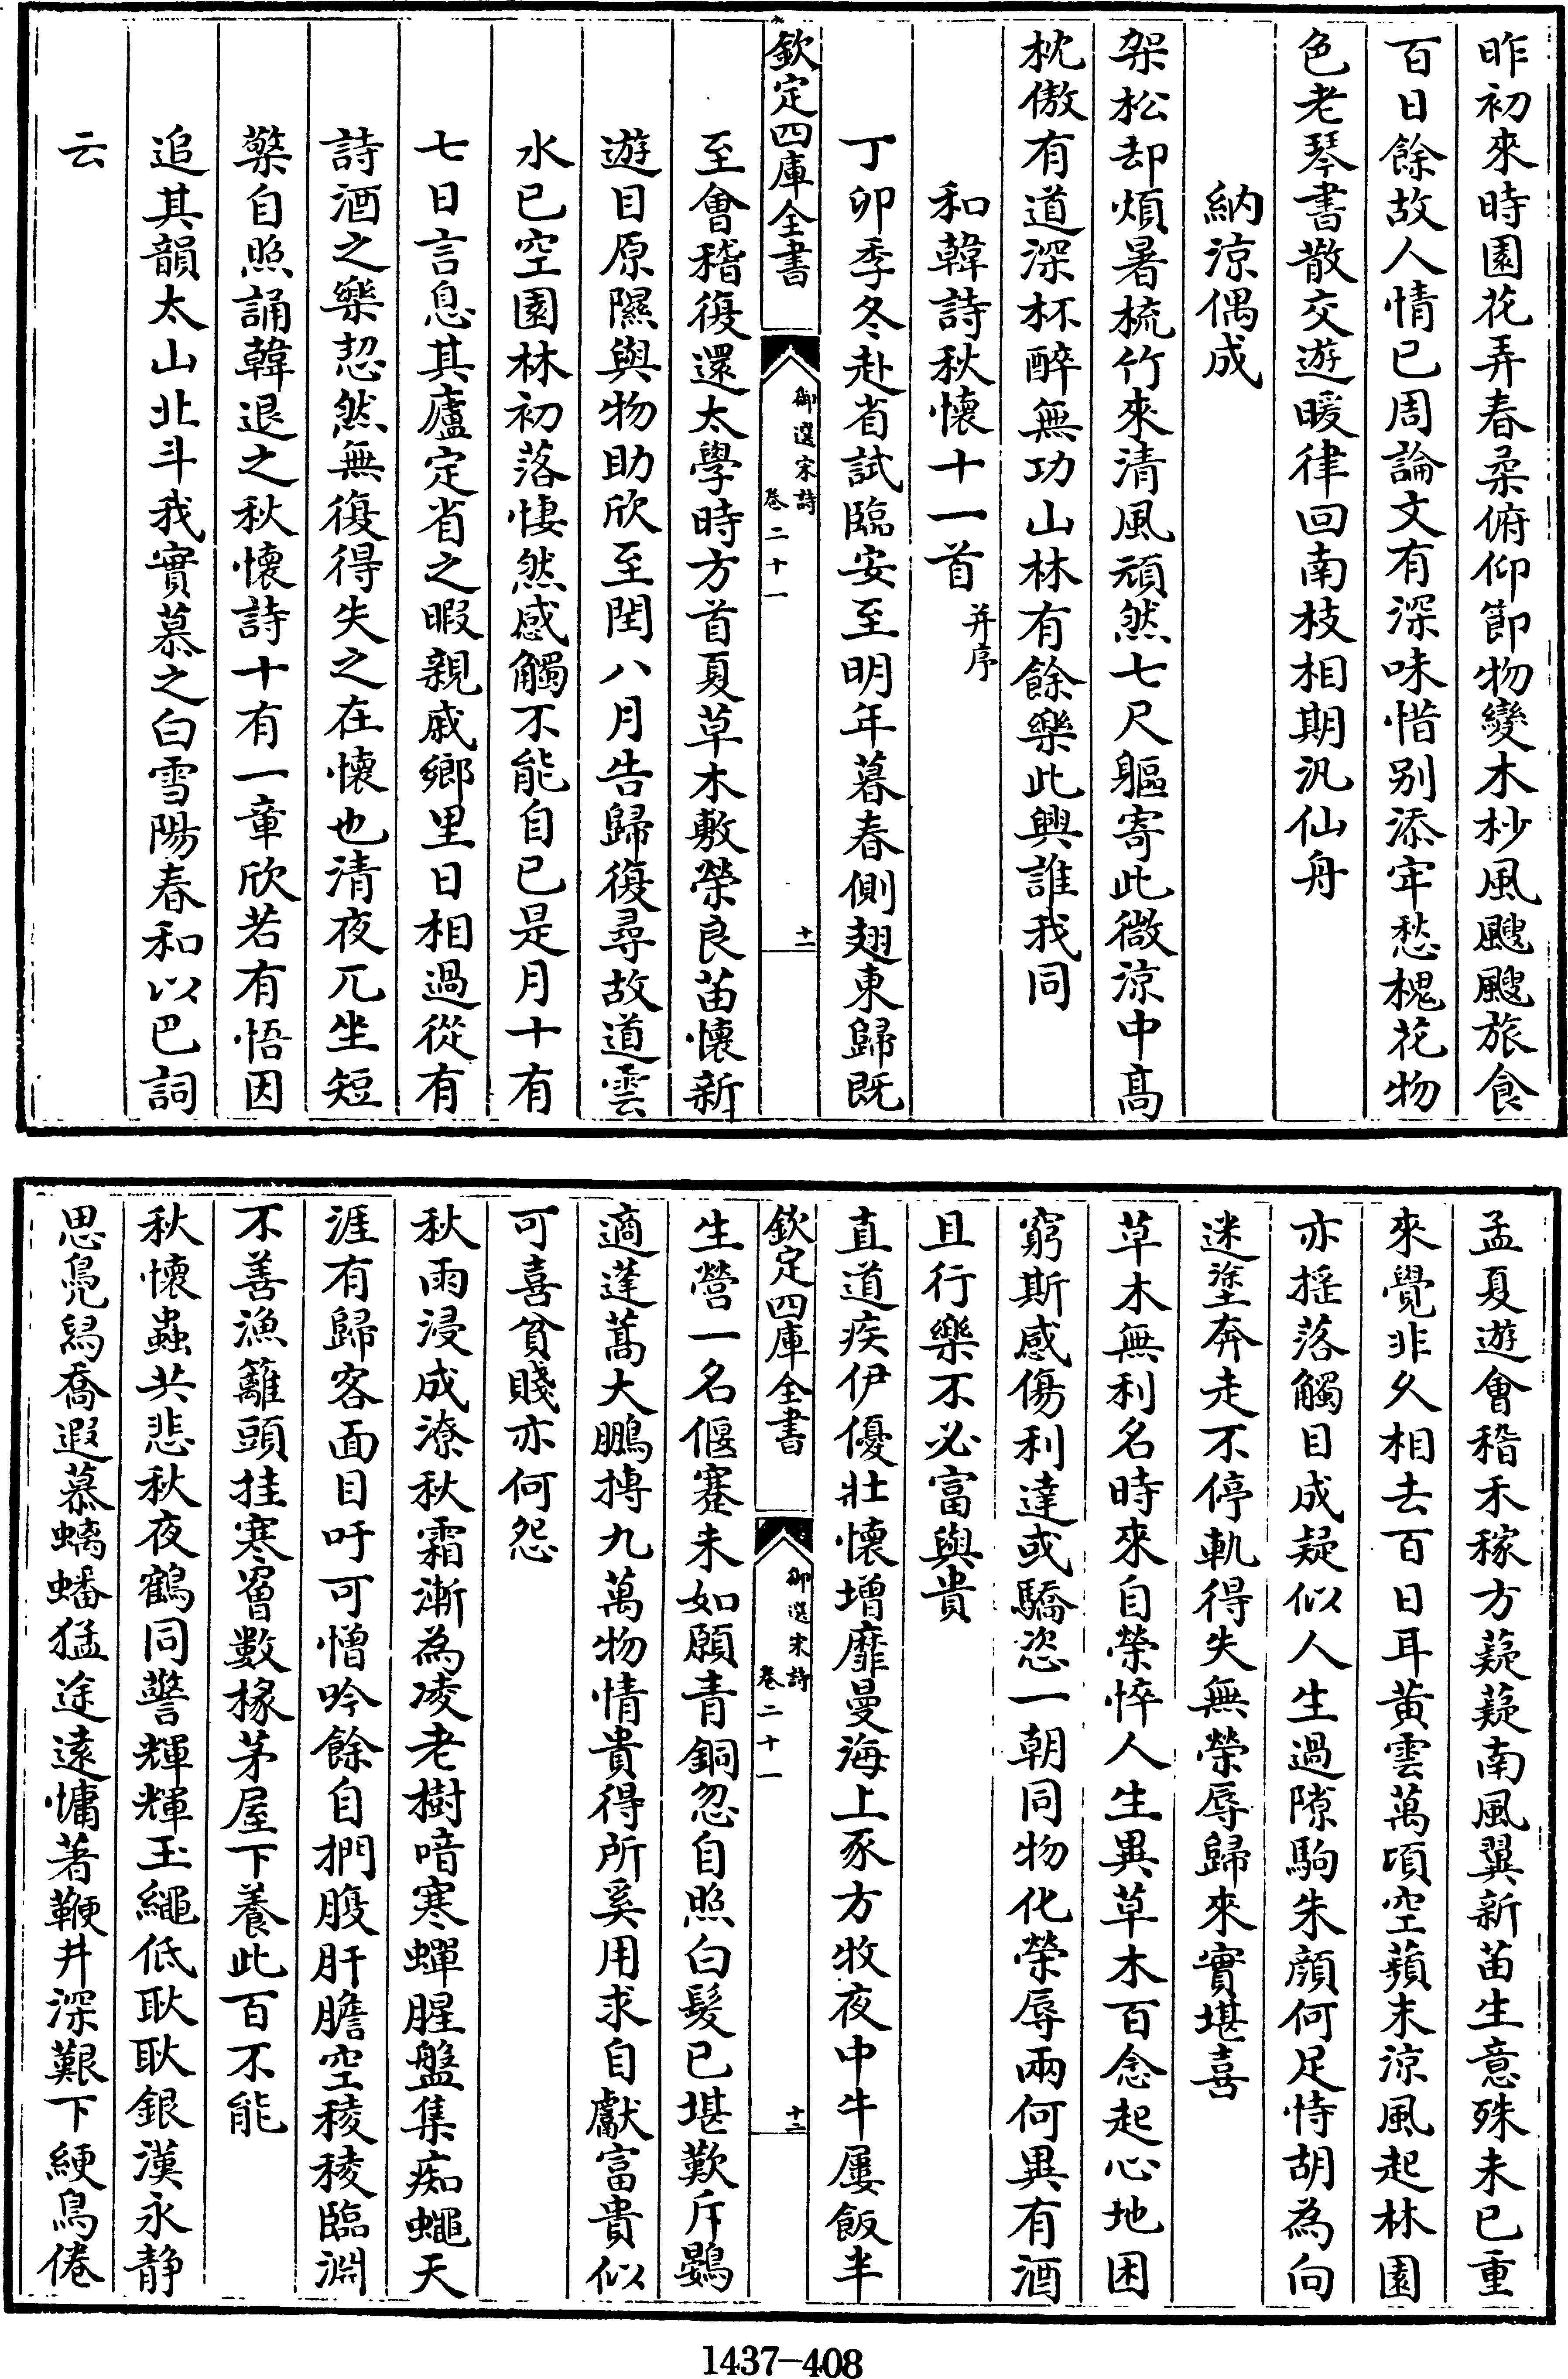 昨初來時園花弄春柔俯仰節物變木杪風颼颼旅食
百日餘故人情已周論文有深味惜别添牢愁槐花物
色老琴書散交遊暖律回南枝相期汎仙舟
納涼偶成
架松却煩暑梳竹來清風頑然七尺軀寄此微涼中高
枕傲有道深杯醉無功山林有餘樂此興誰我同
和韓詩秋懷十一首并序
丁卯季冬赴省試臨安至明年暮春側翅東歸既
欽定四庫全書
御選宋詩
卷二十一
十一
至會稽復還太學時方首夏草木敷榮良苗懷新
遊目原隰與物助欣至閏八月告歸復尋故道雲
水已空園林初落悽然感觸不能自已是月十有
七日言息其廬定省之暇親戚鄉里日相過從有
詩酒之樂恝然無復得失之在懷也清夜兀坐短
檠自照誦韓退之秋懷詩十有一章欣若有悟因
追其韻太山北斗我實慕之白雪陽春和以巴詞
云
孟夏遊會稽禾稼方薿薿南風翼新苗生意殊未已重
來覺非久相去百日耳黃雲萬頃空蘋末涼風起林園
亦揺落觸目成疑似人生過隙駒朱顔何足恃胡為向
迷塗奔走不停軌得失無榮辱歸來實堪喜
草木無利名時來自榮悴人生異草木百念起心地困
窮斯感傷利達或驕恣一朝同物化榮辱兩何異有酒
且行樂不必富與貴
直道疾伊優壯懷增靡曼海上豕方牧夜中牛屢飯半
欽定四庫全書
御選宋詩
卷二十一
十二
生營一名偃蹇未如願青銅忽自照白髮已堪歎斥鷃
適蓬蒿大鵬摶九萬物情貴得所奚用求自獻富貴似
可喜貧賤亦何怨
秋雨浸成潦秋霜漸為凌老樹喑寒蟬腥盤集痴蠅天
涯有歸客面目吁可憎吟餘自捫腹肝膽空稜稜臨淵
不善漁籬頭挂寒罾數椽茅屋下養此百不能
秋懷蟲共悲秋夜鶴同警輝輝玉繩低耿耿銀漢永靜
思鳧舄喬遐慕螭蟠猛途遠慵著鞭井深艱下綆鳥倦
1437-408